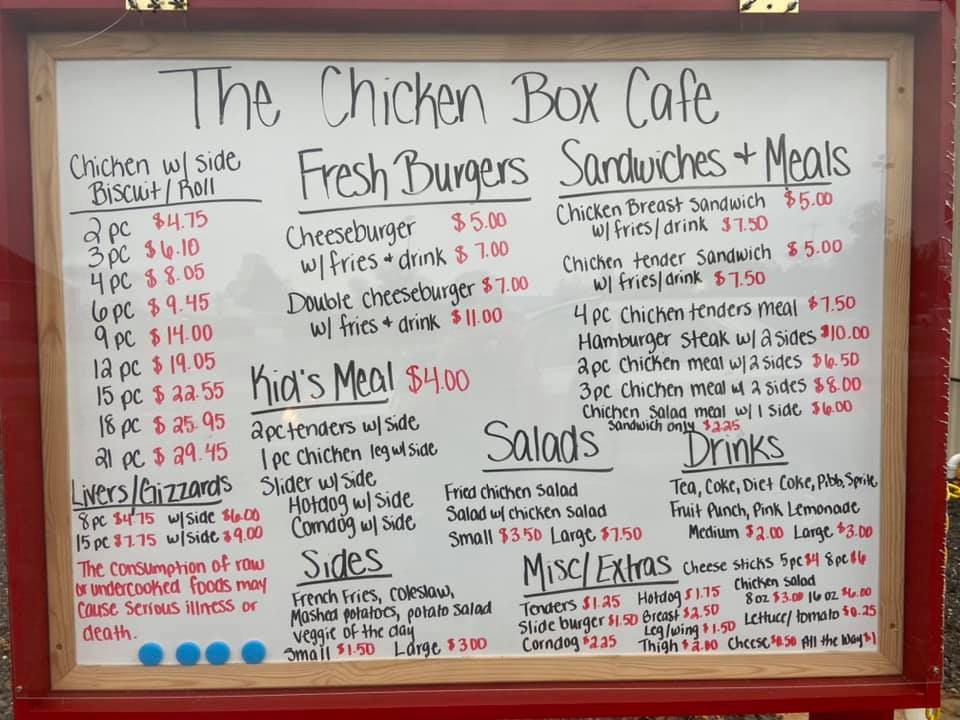 The Chicken Box Cafe
Chicken w/ side
Biscuit/Roll
2 pc $4.75
3 pc $6.10
4 pc $8.05
6 pc $9.45
9 pc $14.00
12 pc $19.05
15 pc $22.55
18 pc $25.95
21 pc $29.45
Livers/Gizzards
8 pc $4.75 w/side $6.00
15 pc $7.75 w/side $9.00
The consumption of raw
or undercooked foods may
cause serious illness or
death.
Fresh Burgers
Cheeseburger $5.00
w/ fries + drink $7.00
Double cheeseburger $7.00
w/ fries + drink $11.00
Kid's Meal $4.00
2pc tenders w/ side
1 pc chicken leg w/ side
Slider w/ side
Hotdog w/ side
Corndog w/ side
Sides
French Fries, coleslaw,
Mashed potatoes, potato salad
veggie of the day
Small $1.50 Large $3.00
Sandwiches + Meals
Chicken Breast Sandwich $5.00
w/ fries/drink $7.50
Chicken tender Sandwich $5.00
w/ fries/drink $7.50
4 pc Chicken tenders meal $7.50
Hamburger Steak w/ 2 sides $10.00
2pc Chicken meal w/ 2 sides $6.50
3pc Chicken meal w/ 2 sides $8.00
Chicken Salad meal w/ 1 side $6.00
Sandwich only $2.25
Salads
Fried chicken Salad
Salad w/ chicken Salad
Small $3.50 Large $7.50
Drinks
Tea, Coke, Diet Coke, Pibb, Sprite
Fruit Punch, Pink Lemonade
Medium $2.00 Large $3.00
Misc/Extras
Cheese sticks 5pc $4 8pc $6
Tenders $1.25 Hotdog $1.75
Slide burger $1.50 Breast $2.50
Leg/wing $1.50
Corndog $2.25 Thigh $2.00
Chicken Salad
8 oz $3.00 16 oz $6.00
Lettuce/tomato $0.25
Cheese $0.50 All the way $1